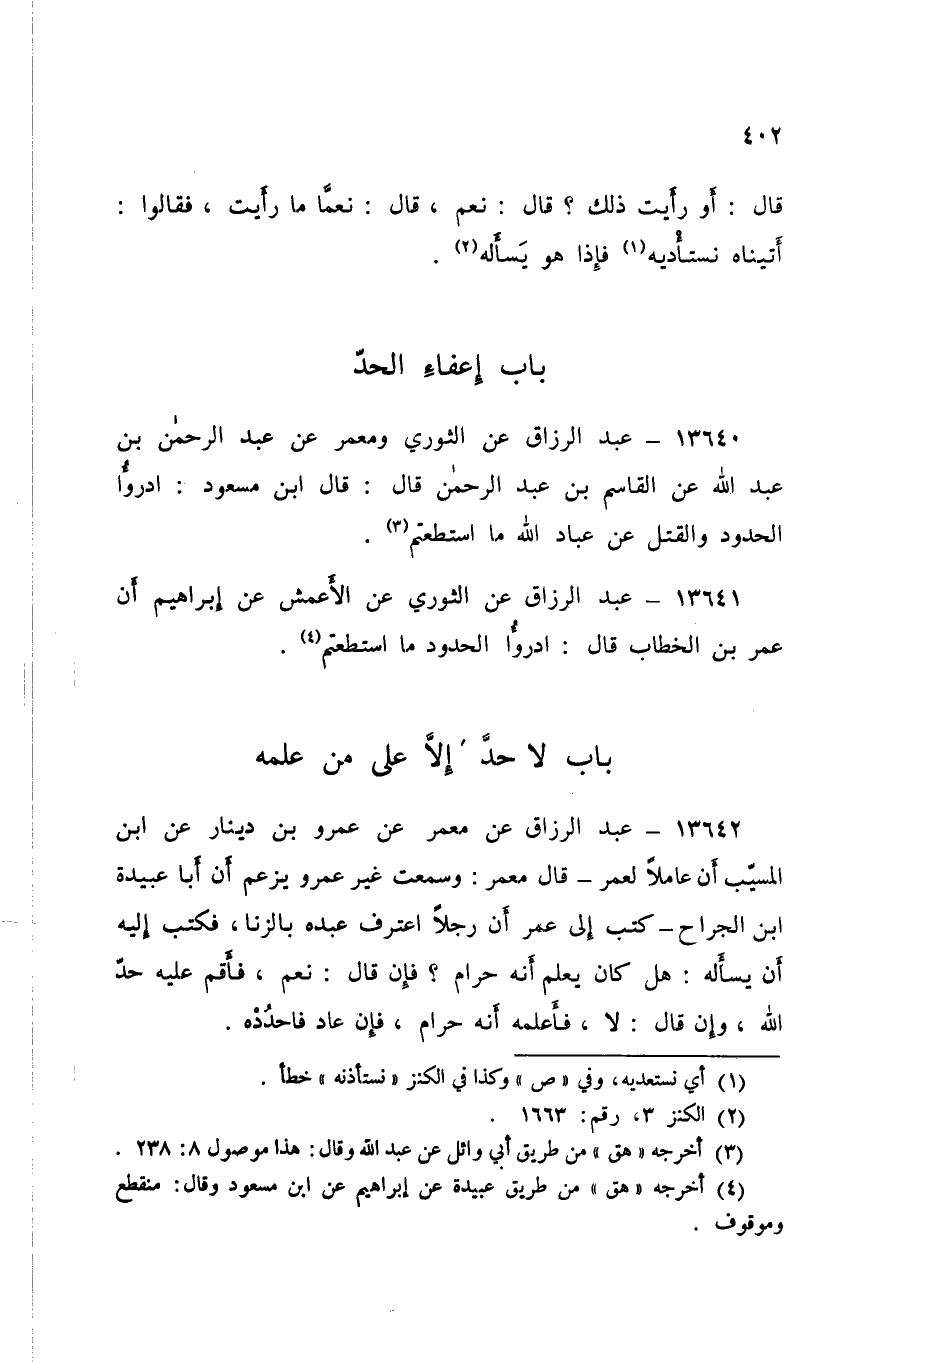 ٤٠٢
قال : أو رأيت ذلك ؟ قال : نعم ، قال : نعمَّا ما رأيت ، فقالوا :
أتيناه نستأْديه(١) فإذا هو يَسأَله(٢) .
باب إعفاءِ الحدّ
١٣٦٤٠ – عبد الرزاق عن الثوري ومعمر عن عبد الرحمٰن بن
عبد الله عن القاسم بن عبد الرحمٰن قال : قال ابن مسعود : ادروُّا
الحدود والقتل عن عباد الله ما استطعتم(٣) .
١٣٦٤١ – عبد الرزاق عن الثوري عن الأَعمش عن إبراهيم أن
عمر بن الخطاب قال : ادروُّا الحدود ما استطعتم(٤) .
باب لا حدَّ إلاَّ على من علمه
١٣٦٤٢ – عبد الرزاق عن معمر عن عمرو بن دينار عن ابن
المسيّب أن عاملاً لعمر – قال معمر : وسمعت غير عمرو يزعم أن أبا عبيدة
ابن الجراح – كتب إلى عمر أن رجلاً اعترف عبده بالزنا ، فكتب إليه
أن يسأَله : هل كان يعلم أنه حرام ؟ فإن قال : نعم ، فأَقم عليه حدّ
الله ، وإن قال : لا ، فأَعلمه أنه حرام ، فإن عاد فاحدُدْه .
(١) أي نستعديه، وفي « ص » وكذا في الكنز « نستأذنه » خطأ .
(٢) الكنز ٣، رقم: ١٦٦٣ .
(٣) أخرجه « هق » من طريق أبي وائل عن عبد الله وقال: هذا موصول ٨: ٢٣٨ .
(٤) أخرجه « هق » من طريق عبيدة عن إبراهيم عن ابن مسعود وقال: منقطع
وموقوف .